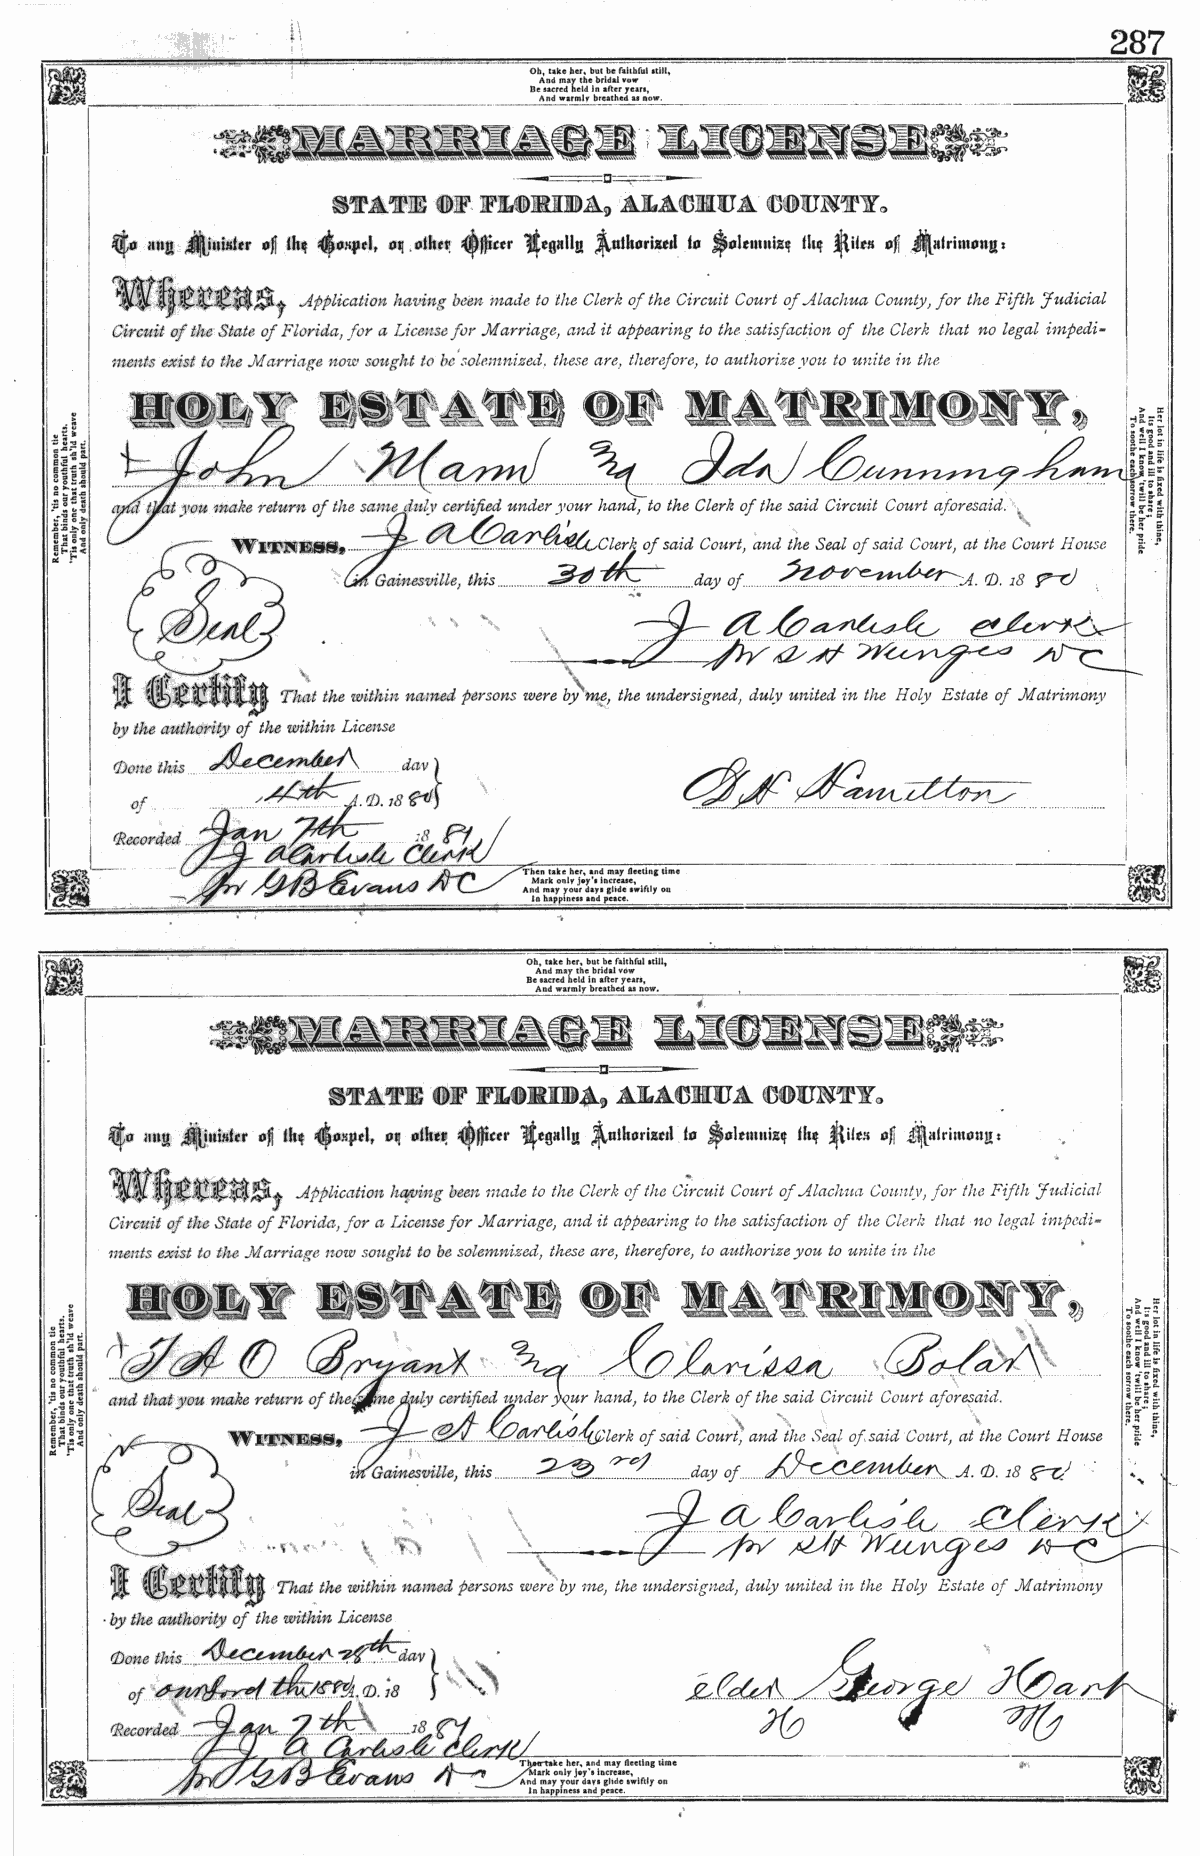 287
Oh, take her, but be faithful still,
And may the bridal vow
Be sacred held in after years,
And warmly breathed as now.
MARRIAGE LICENSE
STATE OF FLORIDA, ALACHUA COUNTY.
To any Minister of the Gospel, or other Officer Legally Authorized to Solemnize the Rites of Matrimony:
Whereas, Application having been made to the Clerk of the Circuit Court of Alachua County, for the Fifth Judicial
Circuit of the State of Florida, for a License for Marriage, and it appearing to the satisfaction of the Clerk that no legal impedi-
ments exist to the Marriage now sought to be solemnized, these are, therefore, to authorize you to unite in the
HOLY ESTATE OF MATRIMONY,
John Mann and Ida Cunningham
and that you make return of the same duly certified under your hand, to the Clerk of the said Circuit Court aforesaid.
WITNESS, J A Carlisle Clerk of said Court, and the Seal of said Court, at the Court House
in Gainesville, this 30th day of November A. D. 1880
Seal
J A Carlisle Clerk
pr S H Wienges DC
I Certify That the within named persons were by me, the undersigned, duly united in the Holy Estate of Matrimony
by the authority of the within License
Done this December day
of 14th A. D. 1880
G H Hamelton
Recorded Jan 7th 1881
J A Carlisle Clerk
pr G B Evans DC
Then take her, and may fleeting time
Mark only joy's increase,
And may your days glide swiftly on
In happiness and peace.
Remember, 'tis no common tie
That binds our youthful hearts,
'Tis only one that truth sh'ld weave
And only death should part.
Her lot in life is fixed with thine,
Its good and ill to share;
And well I know 'twill be her pride
To soothe each sorrow there.
Oh, take her, but be faithful still,
And may the bridal vow
Be sacred held in after years,
And warmly breathed as now.
MARRIAGE LICENSE
STATE OF FLORIDA, ALACHUA COUNTY.
To any Minister of the Gospel, or other Officer Legally Authorized to Solemnize the Rites of Matrimony:
Whereas, Application having been made to the Clerk of the Circuit Court of Alachua County, for the Fifth Judicial
Circuit of the State of Florida, for a License for Marriage, and it appearing to the satisfaction of the Clerk that no legal impedi-
ments exist to the Marriage now sought to be solemnized, these are, therefore, to authorize you to unite in the
HOLY ESTATE OF MATRIMONY,
T A O Bryant and Clarissa Bolan
and that you make return of the same duly certified under your hand, to the Clerk of the said Circuit Court aforesaid.
WITNESS, J A Carlisle Clerk of said Court, and the Seal of said Court, at the Court House
in Gainesville, this 23rd day of December A. D. 1880
Seal
J A Carlisle Clerk
pr S H Wienges DC
I Certify That the within named persons were by me, the undersigned, duly united in the Holy Estate of Matrimony
by the authority of the within License
Done this December 28th day
of our lord the 1880 A. D. 18
elder George Hart
Recorded Jan 7th 1881
J A Carlisle Clerk
pr G B Evans DC
Then take her, and may fleeting time
Mark only joy's increase,
And may your days glide swiftly on
In happiness and peace.
Remember, 'tis no common tie
That binds our youthful hearts,
'Tis only one that truth sh'ld weave
And only death should part.
Her lot in life is fixed with thine,
Its good and ill to share;
And well I know 'twill be her pride
To soothe each sorrow there.